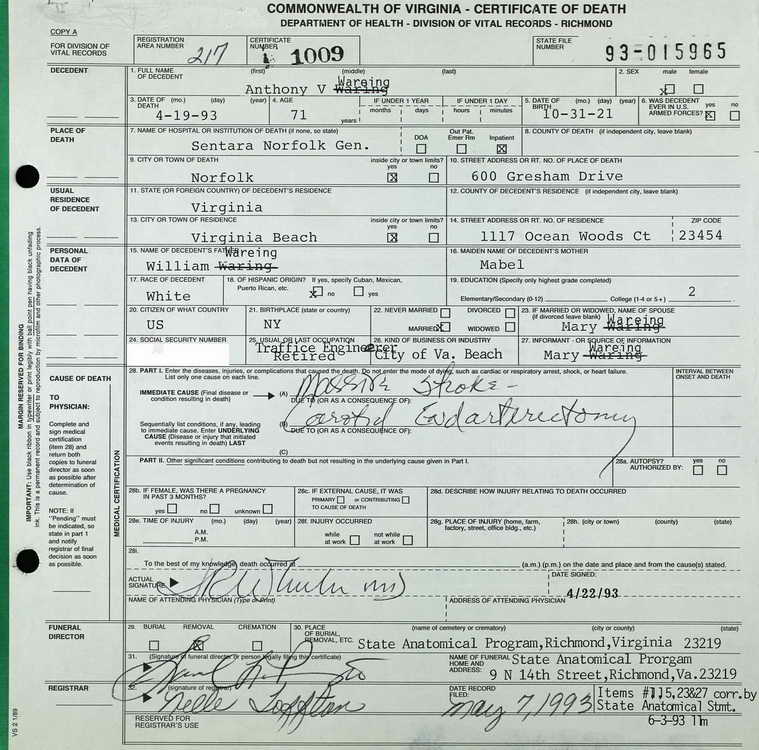 COMMONWEALTH OF VIRGINIA - CERTIFICATE OF DEATH
DEPARTMENT OF HEALTH - DIVISION OF VITAL RECORDS - RICHMOND
COPY A
FOR DIVISION OF VITAL RECORDS
REGISTRATION AREA NUMBER 217
CERTIFICATE NUMBER 1009
STATE FILE NUMBER 93-015965
DECEDENT
1. FULL NAME OF DECEDENT (first) (middle) (last)
Anthony V Wareing Waring
2. SEX male x female
3. DATE OF DEATH (mo.) (day) (year) 4-19-93
4. AGE 71 years
IF UNDER 1 YEAR months days
IF UNDER 1 DAY hours minutes
5. DATE OF BIRTH (mo.) (day) (year) 10-31-21
6. WAS DECEDENT EVER IN U.S. ARMED FORCES? yes x no
PLACE OF DEATH
7. NAME OF HOSPITAL OR INSTITUTION OF DEATH (if none, so state)
Sentara Norfolk Gen.
DOA Out Pat. Emer Rm Inpatient x
8. COUNTY OF DEATH (if independent city, leave blank)
9. CITY OR TOWN OF DEATH Norfolk
inside city or town limits? yes x no
10. STREET ADDRESS OR RT. NO. OF PLACE OF DEATH
600 Gresham Drive
USUAL RESIDENCE OF DECEDENT
11. STATE (OR FOREIGN COUNTRY) OF DECEDENT'S RESIDENCE
Virginia
12. COUNTY OF DECEDENT'S RESIDENCE (if independent city, leave blank)
13. CITY OR TOWN OF RESIDENCE Virginia Beach
inside city or town limits? yes x no
14. STREET ADDRESS OR RT. NO. OF RESIDENCE
1117 Ocean Woods Ct
ZIP CODE 23454
PERSONAL DATA OF DECEDENT
15. NAME OF DECEDENT'S FATHER
William Wareing Waring
16. MAIDEN NAME OF DECEDENT'S MOTHER
Mabel
17. RACE OF DECEDENT White
18. OF HISPANIC ORIGIN? If yes, specify Cuban, Mexican, Puerto Rican, etc. x no yes
19. EDUCATION (Specify only highest grade completed)
Elementary/Secondary (0-12) College (1-4 or 5+) 2
20. CITIZEN OF WHAT COUNTRY US
21. BIRTHPLACE (state or country) NY
22. NEVER MARRIED DIVORCED
MARRIED x WIDOWED
23. IF MARRIED OR WIDOWED, NAME OF SPOUSE (if divorced leave blank)
Mary Wareing Waring
24. SOCIAL SECURITY NUMBER
25. USUAL OR LAST OCCUPATION
Traffice Engineerer
Retired
26. KIND OF BUSINESS OR INDUSTRY
City of Va. Beach
27. INFORMANT - OR SOURCE OF INFORMATION
Mary Wareing Waring
CAUSE OF DEATH
TO PHYSICIAN:
Complete and sign medical certification (item 28) and return both copies to funeral director as soon as possible after determination of cause.
NOTE: If "Pending" must be indicated, so state in part 1 and notify registrar of final decision as soon as possible.
MARGIN RESERVED FOR BINDING
IMPORTANT: Use black ribbon in typewriter or print legibly with ball point pen having black unfading ink. This is a permanent record and subject to reproduction by microfilm and other photographic process.
MEDICAL CERTIFICATION
28. PART I. Enter the diseases, injuries, or complications that caused the death. Do not enter the mode of dying, such as cardiac or respiratory arrest, shock, or heart failure. List only one cause on each line.
INTERVAL BETWEEN ONSET AND DEATH
IMMEDIATE CAUSE (Final disease or condition resulting in death) (A) Massive Stroke -
DUE TO (OR AS A CONSEQUENCE OF):
Sequentially list conditions, if any, leading to immediate cause. Enter UNDERLYING CAUSE (Disease or injury that initiated events resulting in death) LAST
(B) Carotid Endarterectomy
DUE TO (OR AS A CONSEQUENCE OF):
(C)
PART II. Other significant conditions contributing to death but not resulting in the underlying cause given in Part I.
28a. AUTOPSY? AUTHORIZED BY: yes no
28b. IF FEMALE, WAS THERE A PREGNANCY IN PAST 3 MONTHS?
yes no unknown
28c. IF EXTERNAL CAUSE, IT WAS
PRIMARY or CONTRIBUTING
TO CAUSE OF DEATH
28d. DESCRIBE HOW INJURY RELATING TO DEATH OCCURRED
28e. TIME OF INJURY (mo.) (day) (year)
A.M.
P.M.
28f. INJURY OCCURRED
while at work not while at work
28g. PLACE OF INJURY (home, farm, factory, street, office bldg., etc.)
28h. (city or town) (county) (state)
28i.
To the best of my knowledge, death occurred at (a.m.) (p.m.) on the date and place and from the cause(s) stated.
ACTUAL SIGNATURE
DATE SIGNED: 4/22/93
NAME OF ATTENDING PHYSICIAN (Type or Print)
ADDRESS OF ATTENDING PHYSICIAN
FUNERAL DIRECTOR
29. BURIAL REMOVAL x CREMATION
30. PLACE OF BURIAL, REMOVAL, ETC. (name of cemetery or crematory) (city or county) (state)
State Anatomical Program,Richmond,Virginia 23219
31. (Signature of funeral director or person legally filing this certificate)
NAME OF FUNERAL HOME AND ADDRESS:
State Anatomical Prorgam
9 N 14th Street,Richmond,Va.23219
REGISTRAR
32. (signature of registrar)
Nelle Loffton
DATE RECORD FILED: May 7, 1993
RESERVED FOR REGISTRAR'S USE
Items #1,15,23&27 corr.by
State Anatomical Stmt.
6-3-93 llm
VS 2 1/89